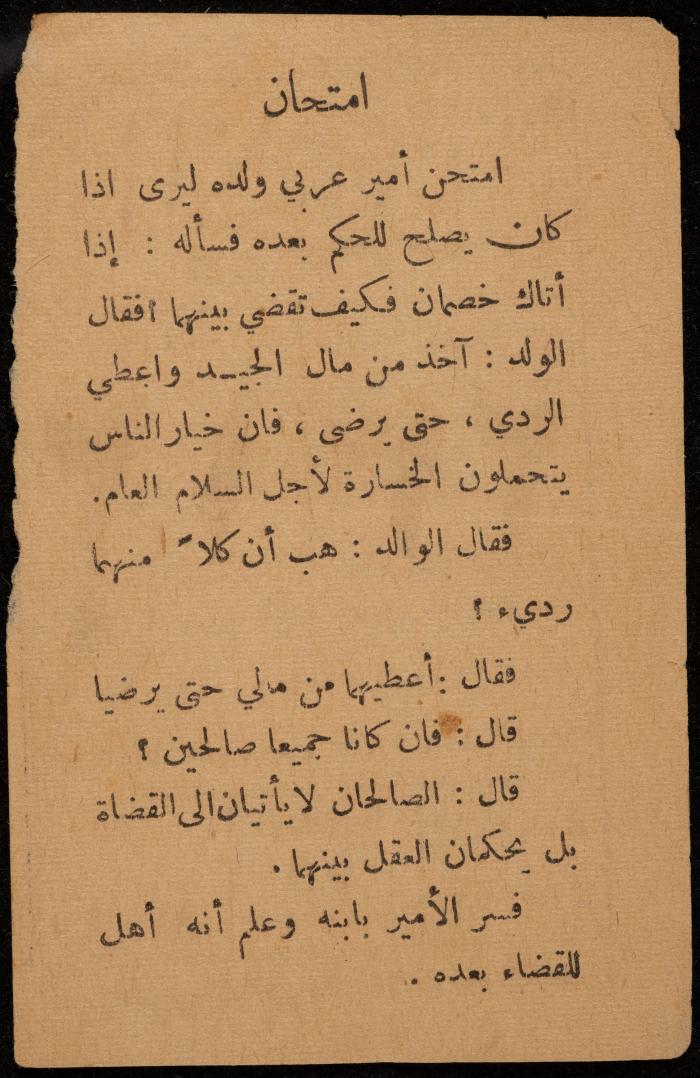 امتحان
امتحن أمير عربي ولده ليرى اذا
كان يصلح للحكم بعده فسأله : إذا
أتاك خصمان فكيف تقضي بينهما ؟ فقال
الولد : آخذ من مال الجيد واعطي
الردي ، حتى يرضى ، فان خيار الناس
يتحملون الخسارة لأجل السلام العام .
فقال الوالد : هب أن كلاً منهما
رديء ؟
فقال : أعطيهما من مالي حتى يرضيا
قال : فان كانا جميعا صالحين ؟
قال : الصالحان لا يأتيان الى القضاة
بل يحكمان العقل بينهما .
فسر الأمير بابنه وعلم أنه أهل
للقضاء بعده .